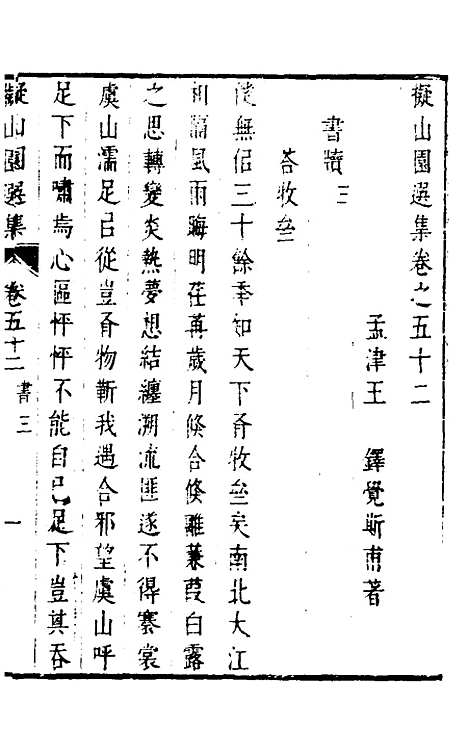 擬山園選集卷之五十二
孟津王 鐸覺斯甫著
書牘三
荅牧埀
僕無侶三十餘季知天下有牧埀矣南北大江
相隔風雨晦明荏苒歲月倏合倏離蒹葭白露
之思轉變炎熱夢想結纏溯流匪遂不得褰裳
虞山濡足㠯從豈有物靳我遇合邪望虞山呼
足下而嘯焉心區怦怦不能自已足下豈其吞
擬山園選集 卷五十二 書三 一